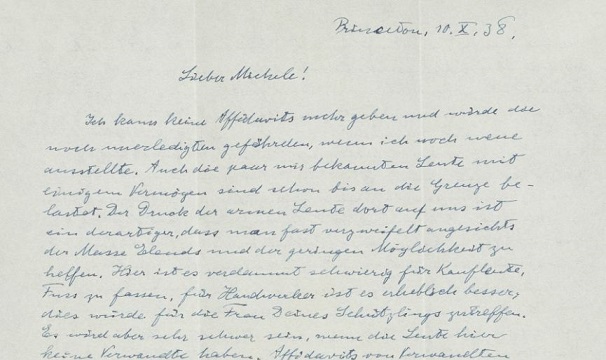 Princeton, 10. X. 38.
Lieber Michele!
Ich kann keine Affidavits mehr geben und würde die
noch unerledigten gefährden, wenn ich noch neue
ausstellte. Auch die paar mir bekannten Leute mit
einigem Vermögen sind schon bis an die Grenze be-
lastet. Der Druck der armen Leute dort auf uns ist
ein derartiger, dass man fast verzweifelt angesichts
der Masse Elends und der geringen Möglichkeit zu
helfen. Hier ist es verdammt schwierig für Kaufleute,
Fuss zu fassen, für Handwerker ist es erheblich besser;
dies würde für die Frau Deines Schützlings zutreffen.
Es wird aber sehr schwer sein, wenn die Leute hier
keine Verwandte haben. Affidavits von Verwandten